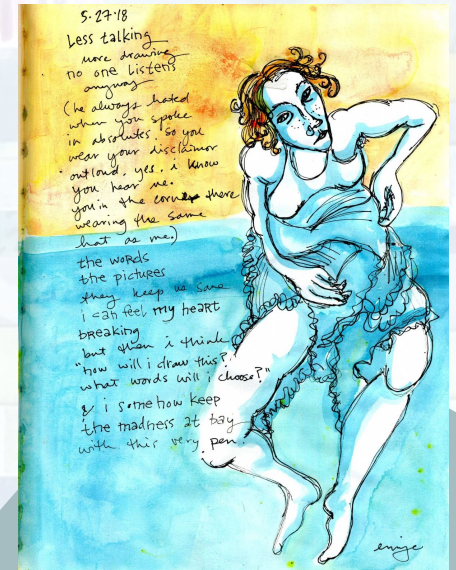 5·27·18
Less talking
more drawing
no one listens
anyway
(he always hated
when you spoke
in absolutes. So you
wear your disclaimor
outloud. yes. i know
you hear me.
you in the corner there
wearing the same
hat as me.)
the words
the pictures
they keep me sane
i can feel my heart
breaking
but then i think
"how will i draw this?
what words will i choose?"
& i somehow keep
the madness at bay
with this very pen